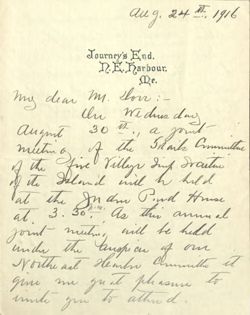 Aug. 24th. 1916
Journey's End.
N.E. Harbour.
Me.
My dear Mr. Dorr:-
On Wednesday
August 30th., a joint
meeting of the Committee
of the five Village Imp. Societies
of the Island will be held
at the Jordan Pond House
at 3.30. As this annual
joint meeting will be held
under the auspices of our
Northeast Harbor Committee it
give me great pleasure to
invite you to attend.